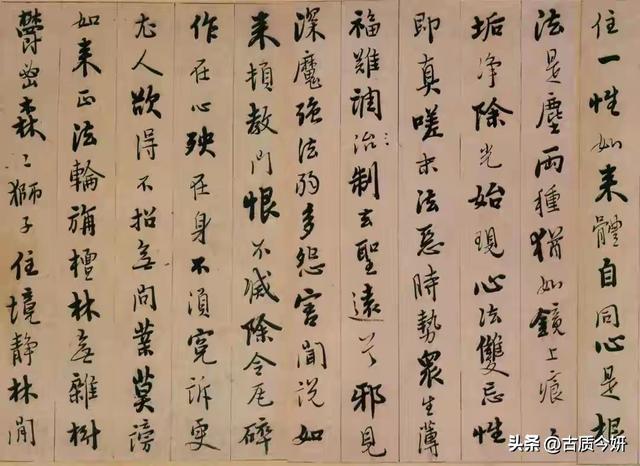 住一性如来體自同心是根
法是塵兩種猶如鏡上痕〻
垢净除光始現心法雙忘性
即真嗟末法惡時勢衆生薄
福難調治制去聖遠兮邪見
深魔强法弱多怨害聞説如
来頓教門恨不滅除令瓦碎
作在心殃在身不須寃訴更
尤人欲得不招無間業莫謗
如来正法輪旃檀林無雜樹
鬱密森〻獅子住境静林間
头条 @古质今妍